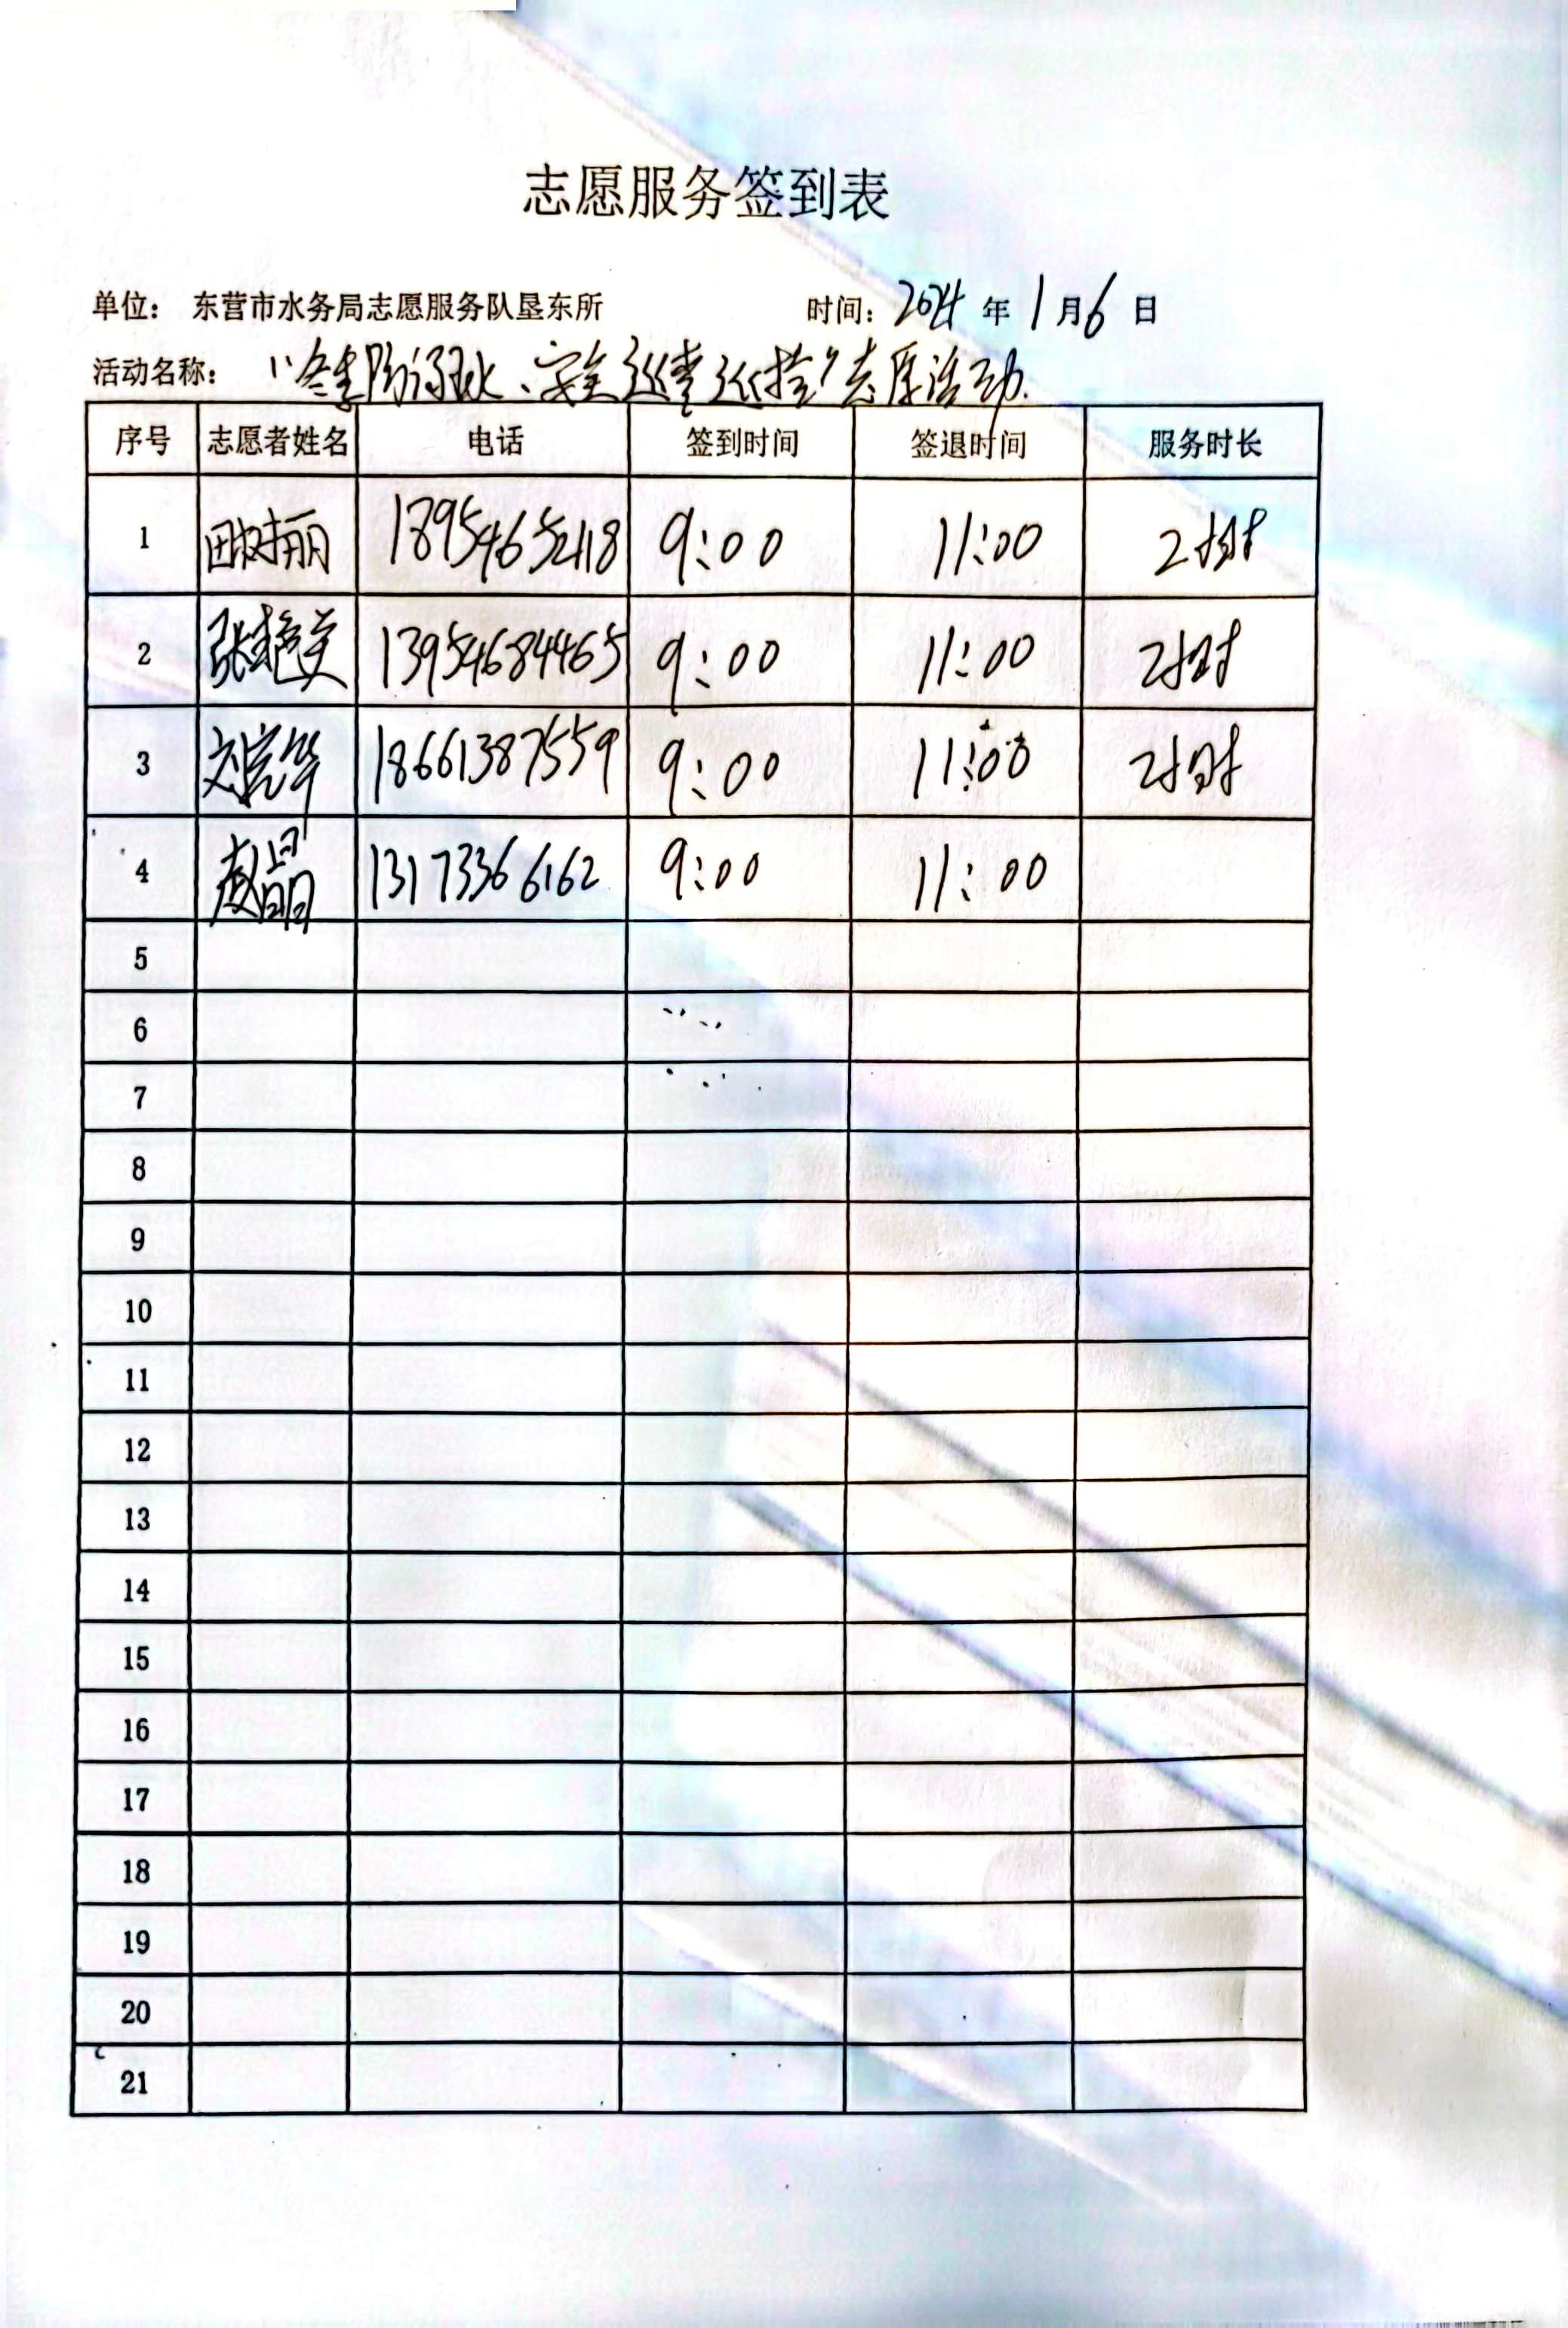 志愿服务签到表
单位： 东营市水务局志愿服务队垦东所 时间：2024 年 1 月 6 日
活动名称： "冬季防溺水、安全巡查巡护"志愿活动.
序号 志愿者姓名 电话 签到时间 签退时间 服务时长
1 田树丽 18954652118 9:00 11:00 2小时
2 张艳英 13954684465 9:00 11:00 2小时
3 刘宪华 18661387559 9:00 11:00 2小时
4 赵晶 13173366162 9:00 11:00
5
6
7
8
9
10
11
12
13
14
15
16
17
18
19
20
21